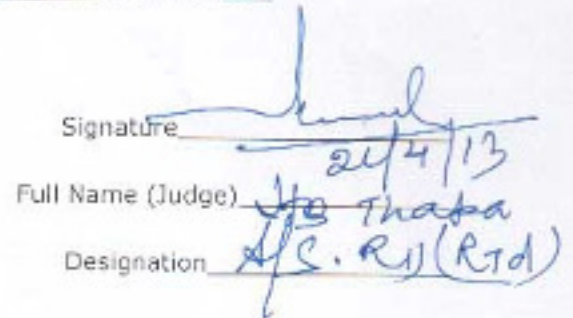 Signature
21/4/13
Full Name (Judge) HB Thapa
Designation A/C. R1) (RTd)